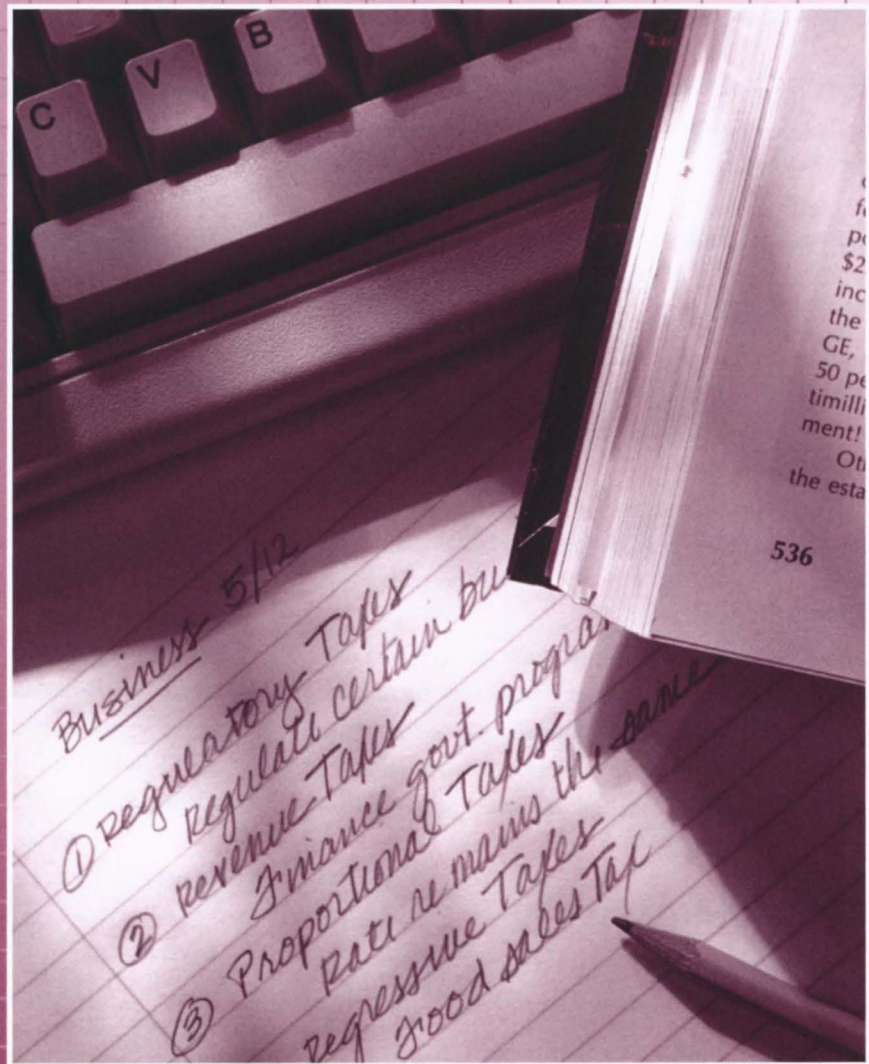 C V B
$2
inc
the
GE,
50 pe
timilli
ment!
the esta
536
Business 5/12
① Regulatory Taxes
Regulate certain bu
② Revenue Taxes
Finance govt. progra
③ Proportional Taxes
Rate remains the same
Regressive Taxes
Food sales Tax